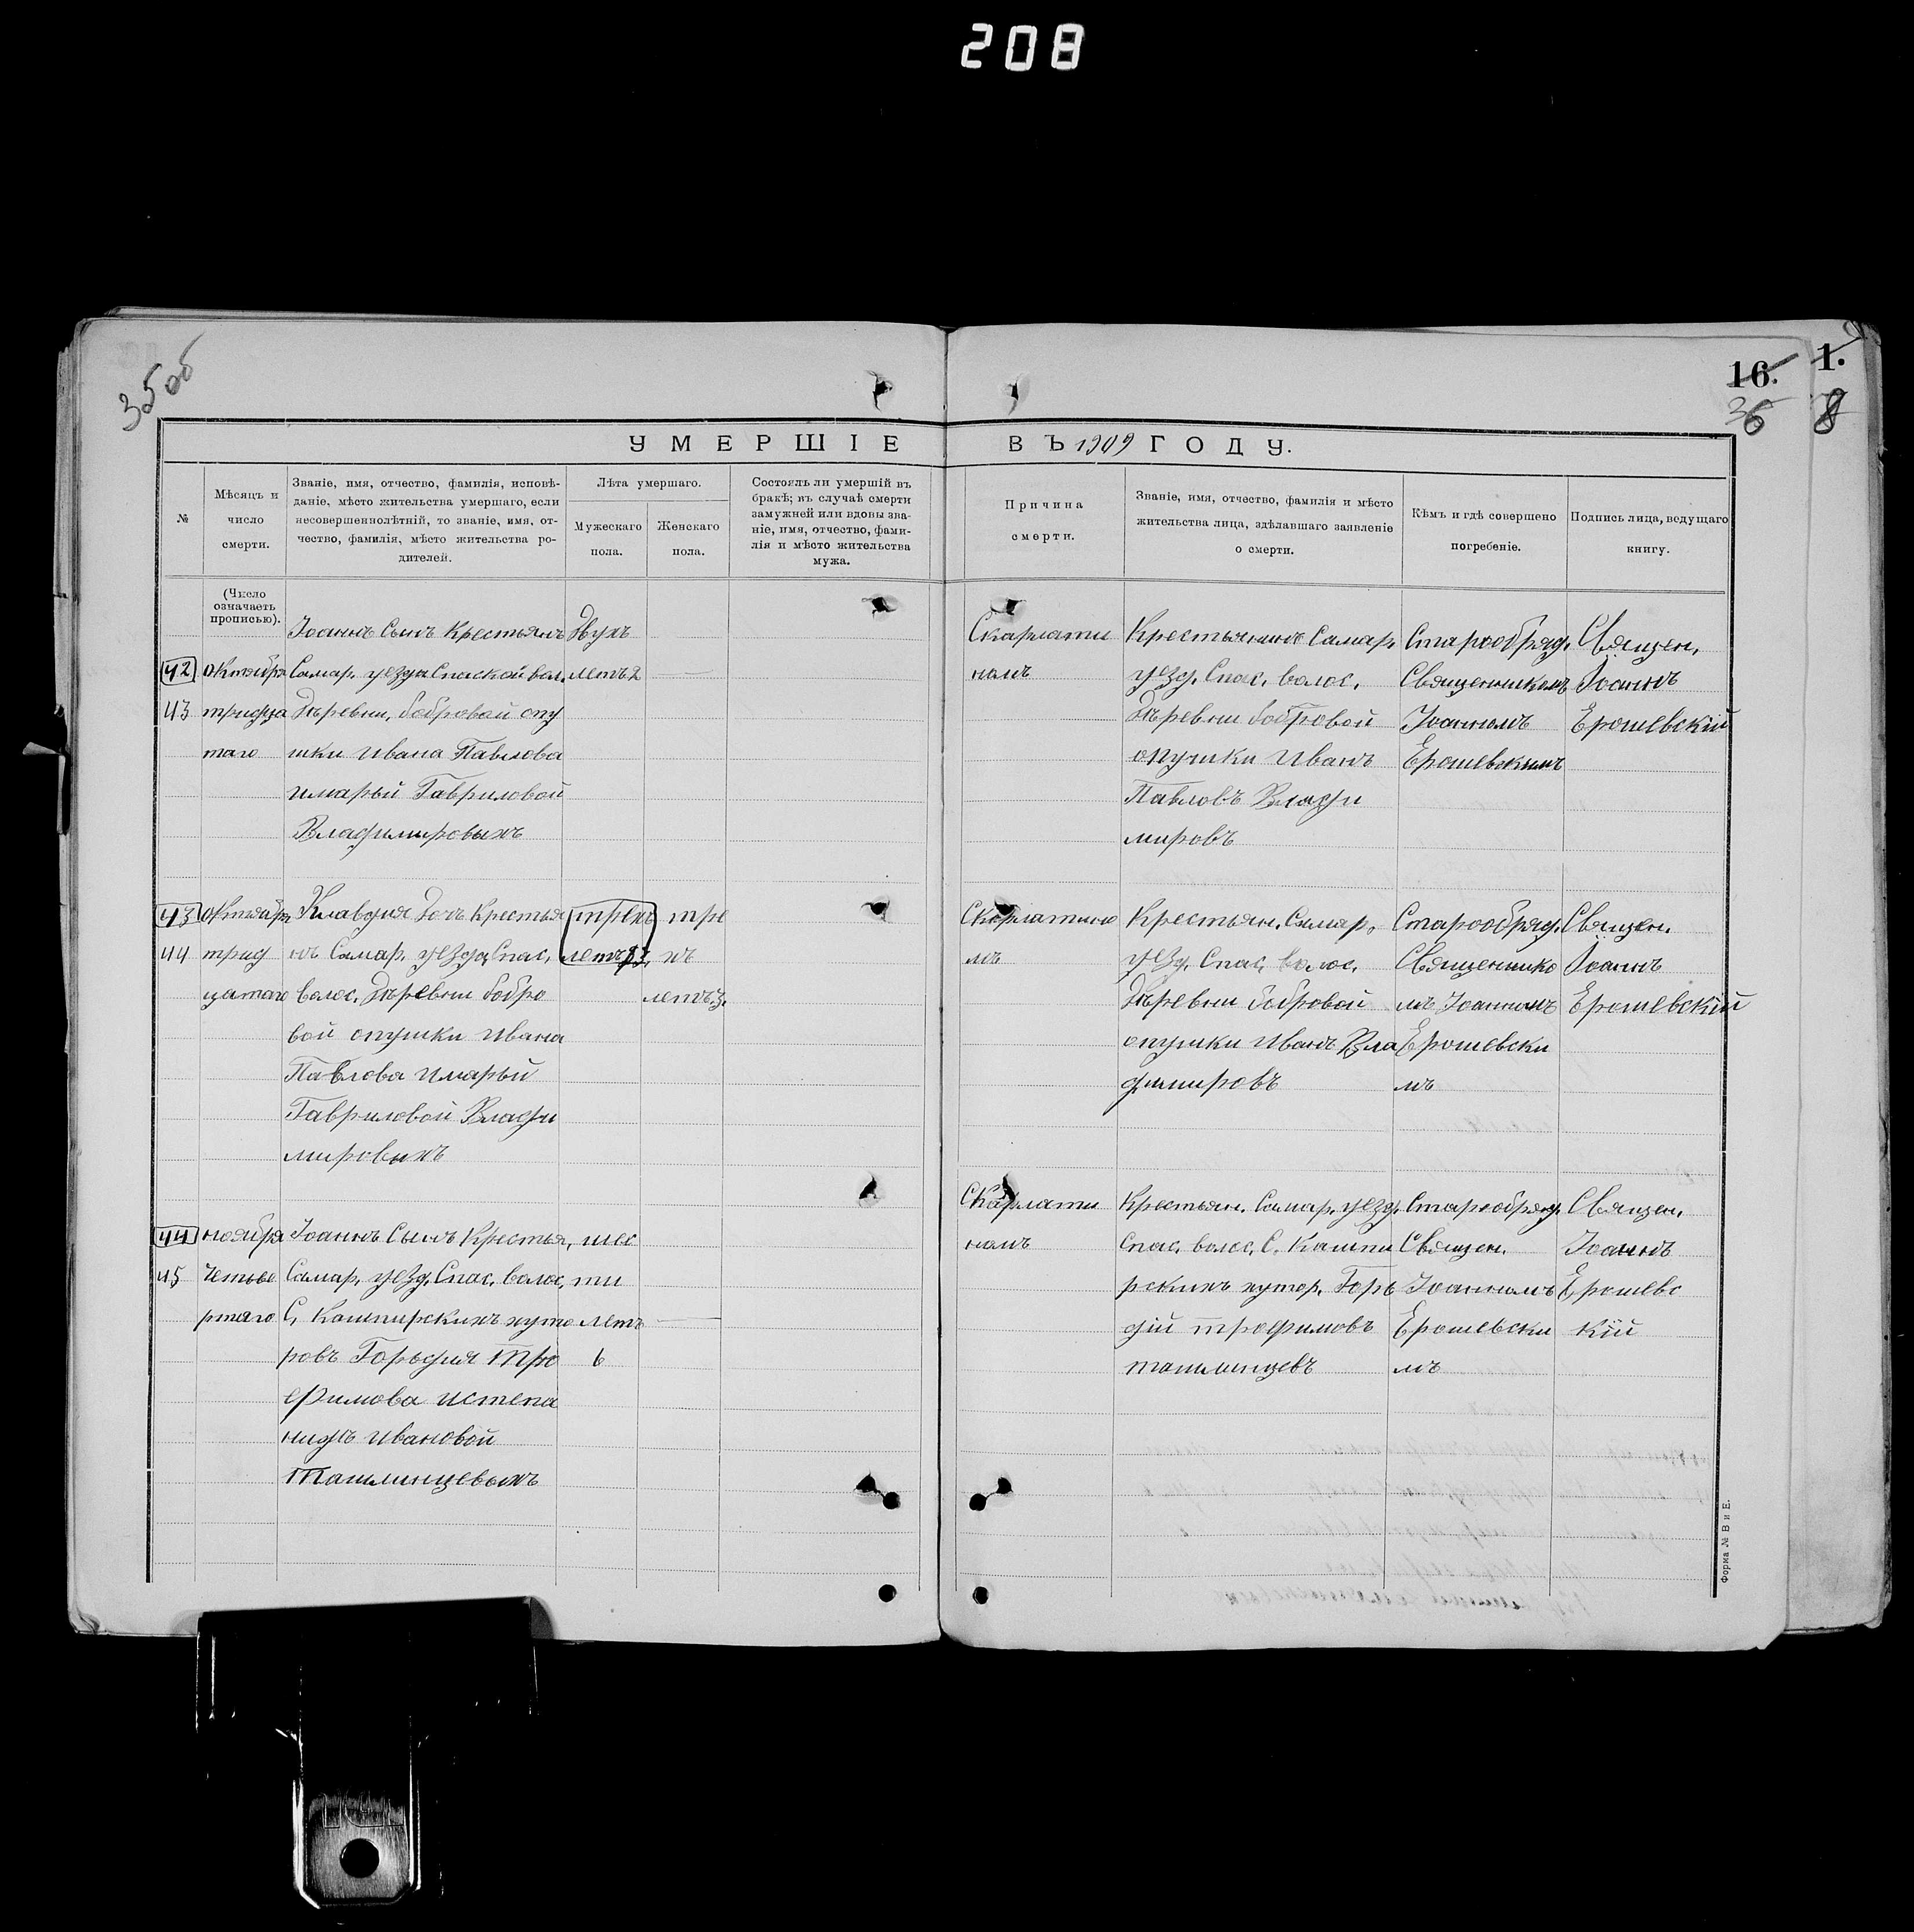 208
35об
16.
36
1.
8
УМЕРШІЕ ВЪ 1909 ГОДУ.
№
Мѣсяцъ и
число
смерти.
Званіе, имя, отчество, фамилія, исповѣ-
даніе, мѣсто жительства умершаго, если
несовершеннолѣтній, то званіе, имя, от-
чество, фамилія, мѣсто жительства ро-
дителей.
Лѣта умершаго.
Мужескаго
пола.
Женскаго
пола.
Состоялъ ли умершій въ
бракѣ; въ случаѣ смерти
замужней или вдовы зва-
ніе, имя, отчество, фами-
лія и мѣсто жительства
мужа.
Причина
смерти.
Званіе, имя, отчество, фамилія и мѣсто
жительства лица, здѣлавшаго заявленіе
о смерти.
Кѣмъ и гдѣ совершено
погребеніе.
Подпись лица, ведущаго
книгу.
(Число
означаетъ
прописью).
42
43
октября
тридца
таго
Іоаннъ Сынъ Крестьянъ
Самар. уезда Спаской вол.
Дѣревни, бобровой опу
шки Ивана Павлова
имарьи Гавриловой
Владимировыхъ
Двухъ
летъ 2
Скарлати
намъ
Крестьянинъ Самар.
уезд. Спас. волос.
Дѣревни бобровой
опушки Иванъ
Павловъ Влади
мировъ
Старообряд.
Священникомъ
Іоанномъ
Ерошевскимъ
Священ.
Іоаннъ
Ерошевскій
43
44
октября
трид
цатаго
Клавдия Дочь Крестья
нъ Самар. уезда Спас.
волос. Дѣревни бобро
вой опушки Ивана
Павлова имарьи
Гавриловой Влади
мировыхъ
трехъ
летъ 3.
тре
хъ
летъ 3.
Скарлатино
мъ
Крестьян. Самар.
уезд. Спас. волос.
Дѣревни бобровой
опушки Иванъ Вла
димировъ
Старообряд.
Священнико
мъ Іоанномъ
Ерошевски
мъ
Священ.
Іоаннъ
Ерошевскій
44
45
ноября
Четве
ртаго
Іоаннъ Сынъ Крестья,
Самар. уезд. Спас. волос,
С. Кашпирскихъ хуто
ровъ Горьдия Тро
фимова истепа
ниды Ивановой
Ташлинцевыхъ
шес
ти
летъ
6
Скарлати
намъ
Крестьян. Самар. уезд.
Спас. волос. С. Кашпи
рскихъ хутор. Горь
дій трофимовъ
ташлинцевъ
Старообряд.
Священ.
Іоанномъ
Ерошевски
мъ
Священ.
Іоаннъ
Ерошевс
кій
Форма № В и Е.